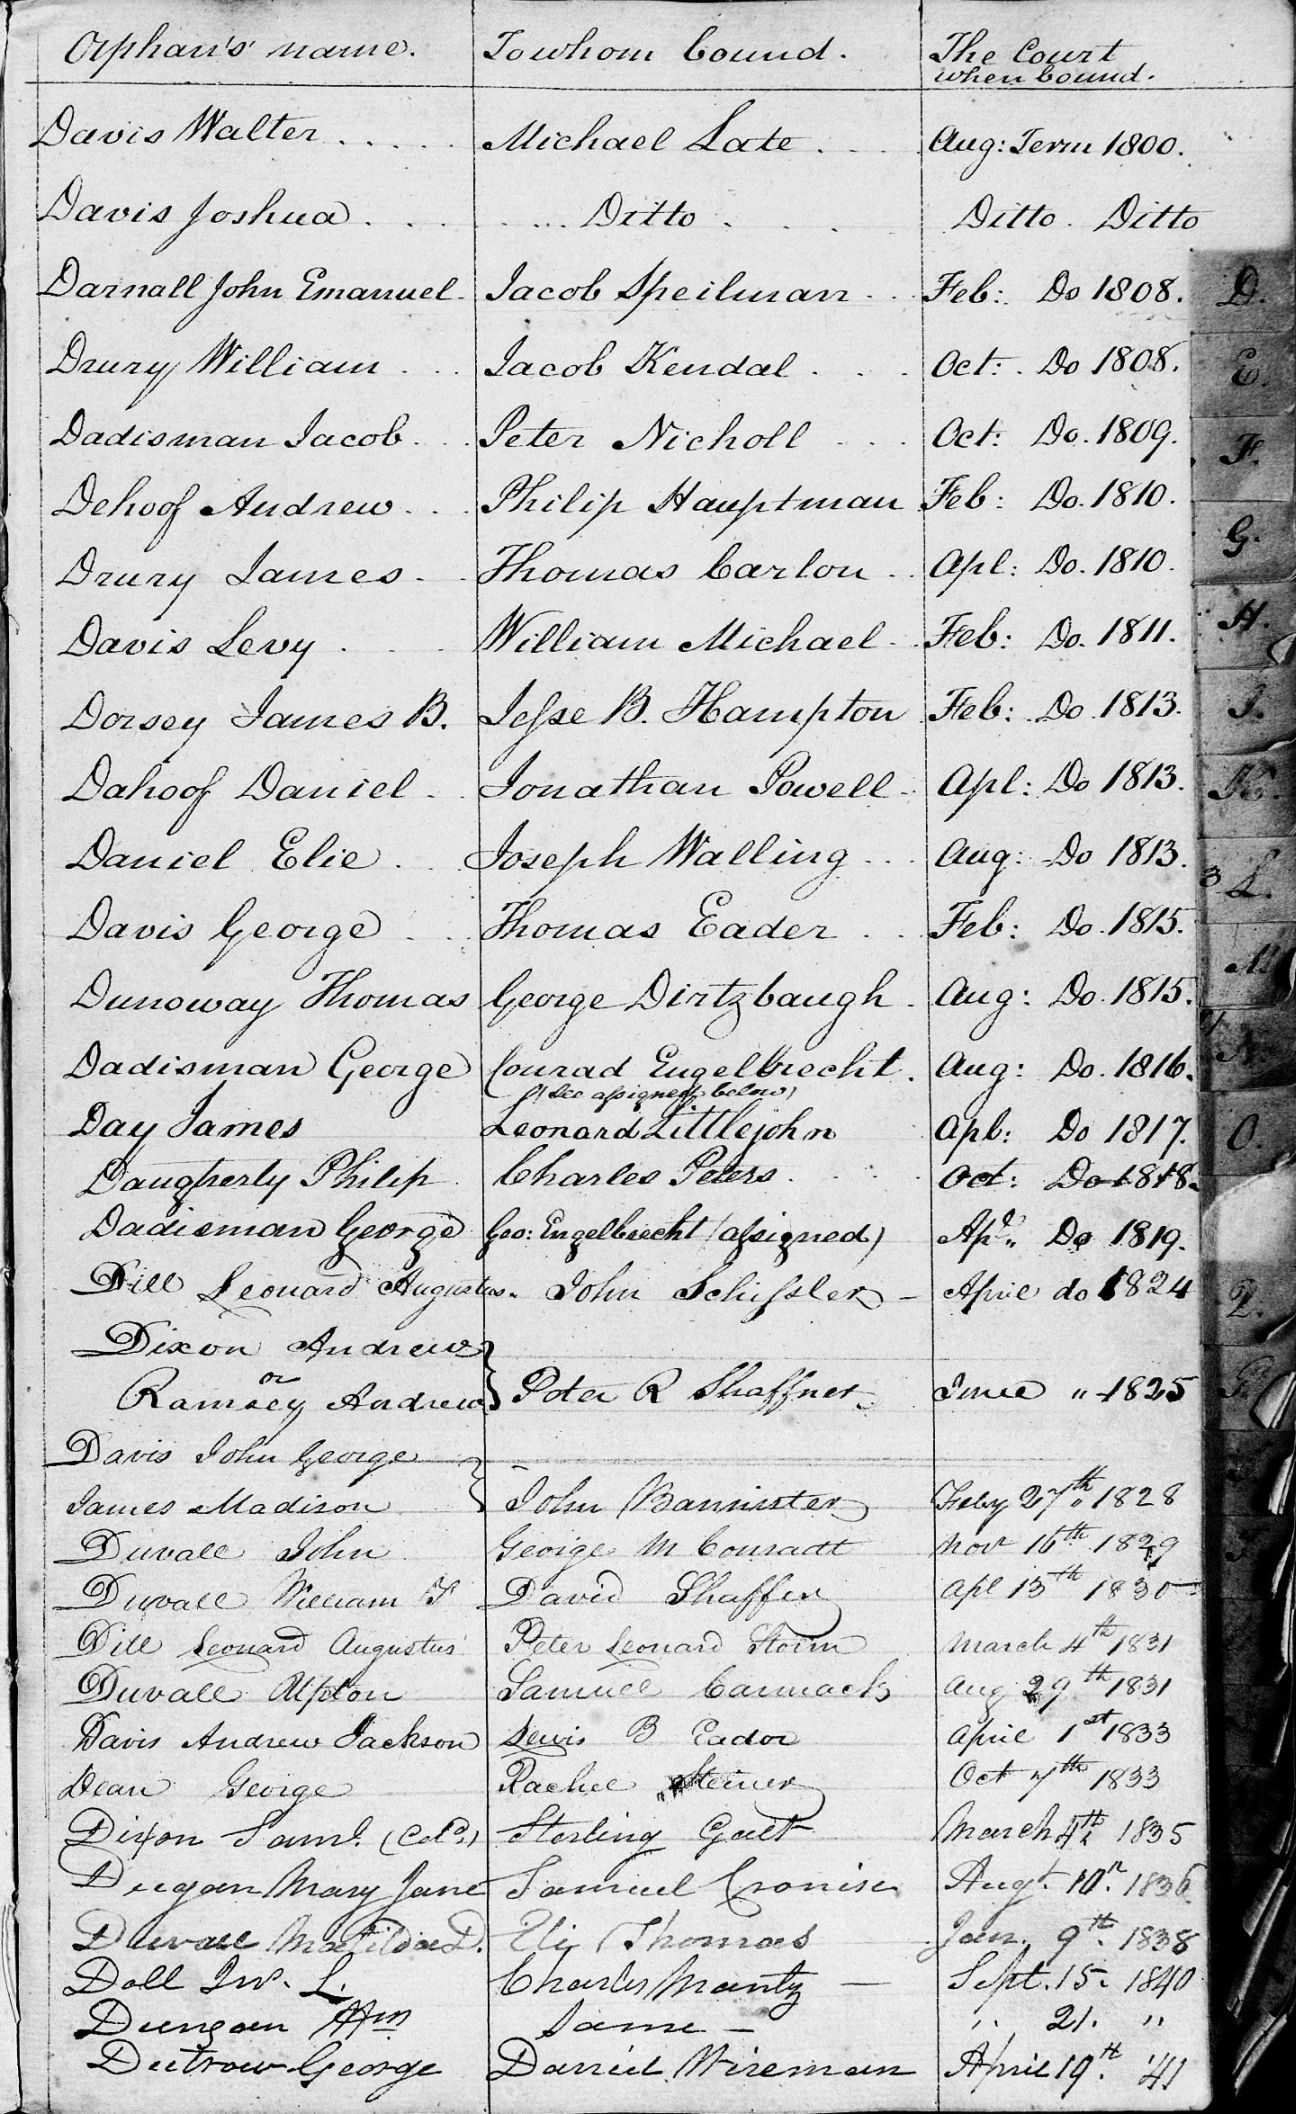 Orphan's name. To whom bound. The Court
when bound.
Davis Walter . . . . . Michael Late . . . Aug: Term 1800.
Davis Joshua . . . . . . Ditto . . . Ditto. Ditto
Darnall John Emanuel. Jacob Speilman . . Feb: Do 1808. D.
Drury William . . . Jacob Kendal . . . Oct: . Do 1808. E.
Dadisman Jacob . . . Peter Nicholl . . . Oct: Do. 1809. F.
Dehoof Andrew . . . Philip Hauptman Feb: Do. 1810.
Drury James . . Thomas Carlon . . Apl: Do. 1810. G.
Davis Levy . . . William Michael . . Feb: Do. 1811. H.
Dorsey James B. Jesse B. Hampton Feb: Do 1813. I.
Dahoof Daniel . . Jonathan Powell . Apl: Do 1813. K.
Daniel Elie . . . Joseph Walling . . . Aug: Do 1813. L.
Davis George . . . Thomas Eader . . . Feb: Do. 1815.
Dunoway Thomas George Dirtzbaugh . Aug: Do. 1815. M
Dadisman George Conrad Engelbrecht. Aug: Do. 1816. N.
(See assignent below)
Day James Leonard Littlejohn Apl: Do 1817. O.
Daugherty Philip Charles Peters . . . Oct: Do 1818.
Dadisman George Geo: Engelbrecht (assigned) Apl. Do 1819.
Dill Leonard Augustus. John Schissler – April do 1824
Dixon Andrew
or
Ramsey Andrew } Peter R Shaffner June " 1825
Davis John George
James Madison } John Bannister Feby 27th 1828
Duvall John George M Conradt Nov 16th 1829
Duvall William F David Shaffer Apl 13th 1830
Dill Leonard Augustus Peter Leonard Storm March 4th 1831
Duvall Upton Samuel Carmack Aug 29th 1831
Davis Andrew Jackson Lewis B Eador April 1st 1833
Dean George Rachel Steiner Oct 7th 1833
Dixon Saml. (Cold.) Sterling Galt March 4th 1835
Dugan Mary Jane Samuel Cronise Augt. 10th 1836
Duvall Matilda D. Eli Thomas Jan. 9th. 1838
Doll Jno. L. Charles Mantz — Sept. 15. 1840
Dungan Wm Same – " 21. "
Dutrow George Daniel Wireman April 19th. '41